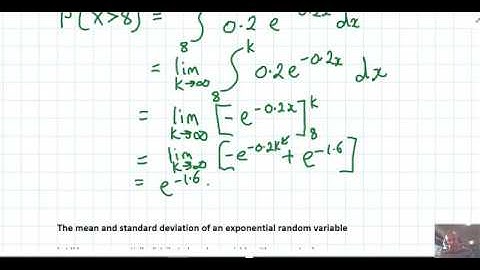 P(X>8) = ∫₈ 0.2 e^{-0.2x} dx
= lim_{k→∞} ∫₈^k 0.2e^{-0.2x} dx
= lim_{k→∞} [-e^{-0.2x}]₈^k
= lim_{k→∞} [-e^{-0.2k} + e^{-1.6}]
= e^{-1.6}.
The mean and standard deviation of an exponential random variable